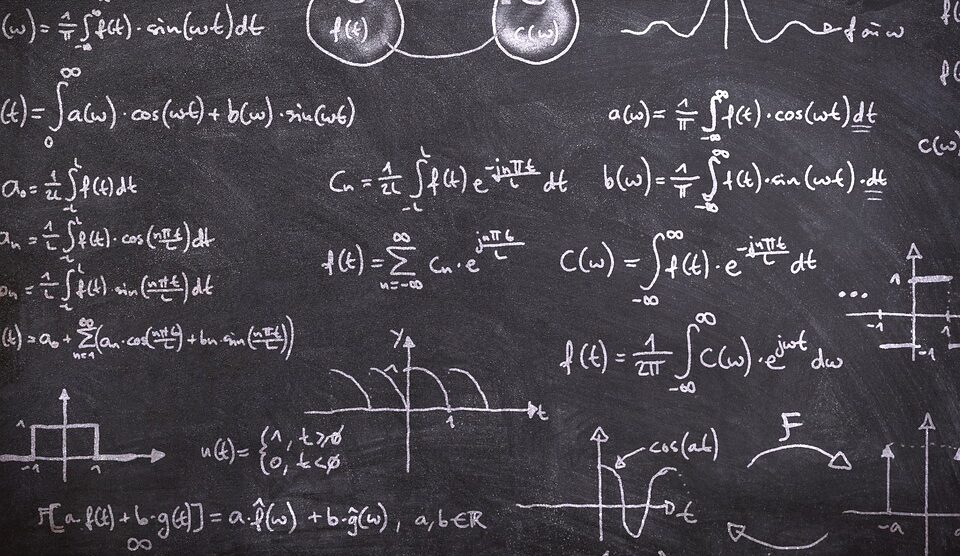 (ω) = 1/π ∫_{-∞}^{∞} f(t) · sin(ωt) dt
f(t)
C(ω)
(t) = ∫_0^∞ a(ω) · cos(ωt) + b(ω) · sin(ωt)
a(ω) = 1/π ∫_{-∞}^{∞} f(t) · cos(ωt) dt
C(ω)
a₀ = 1/2L ∫_{-L}^{L} f(t) dt
Cn = 1/2L ∫_{-L}^{L} f(t) e^{-jnπt/L} dt
b(ω) = 1/π ∫_{-∞}^{∞} f(t) · sin(ωt) · dt
an = 1/L ∫_{-L}^{L} f(t) · cos(nπt/L) dt
f(t) = ∑_{n=-∞}^{∞} Cn · e^{jnπt/L}
C(ω) = ∫_{-∞}^{∞} f(t) · e^{-jnπt/L} dt
bn = 1/L ∫_{-L}^{L} f(t) · sin(nπt/L) dt
...
1
-1
1
-1
(t) = a₀ + ∑_{n=1}^{∞} (an · cos(nπt/L) + bn · sin(nπt/L))
f(t) = 1/2π ∫_{-∞}^{∞} C(ω) · e^{jωt} dω
y
1
1
t
1
-1
1
u(t) = {1, t ≥ 0
{0, t < 0
cos(at)
t
F
-a
F[a · f(t) + b · g(t)] = a · f̂(ω) + b · ĝ(ω), a, b ∈ ℝ
∞